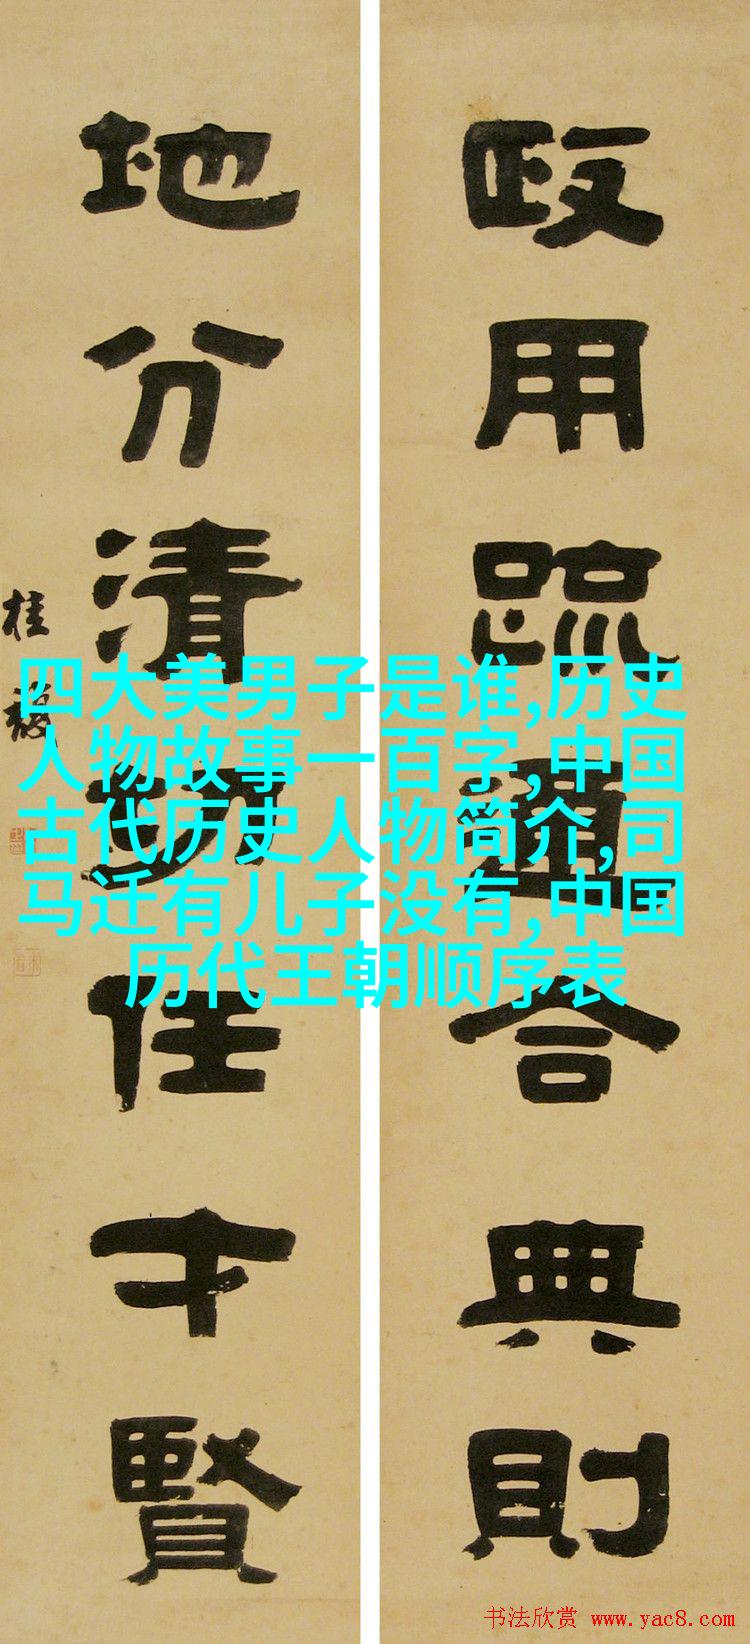 政用疏通合典則
地分清切任才賢
桂馥
四大美男子是谁,历史
人物故事一百字,中国
古代历史人物简介,司
马迁有儿子没有,中国
历代王朝顺序表
书法欣赏 www.yac8.com